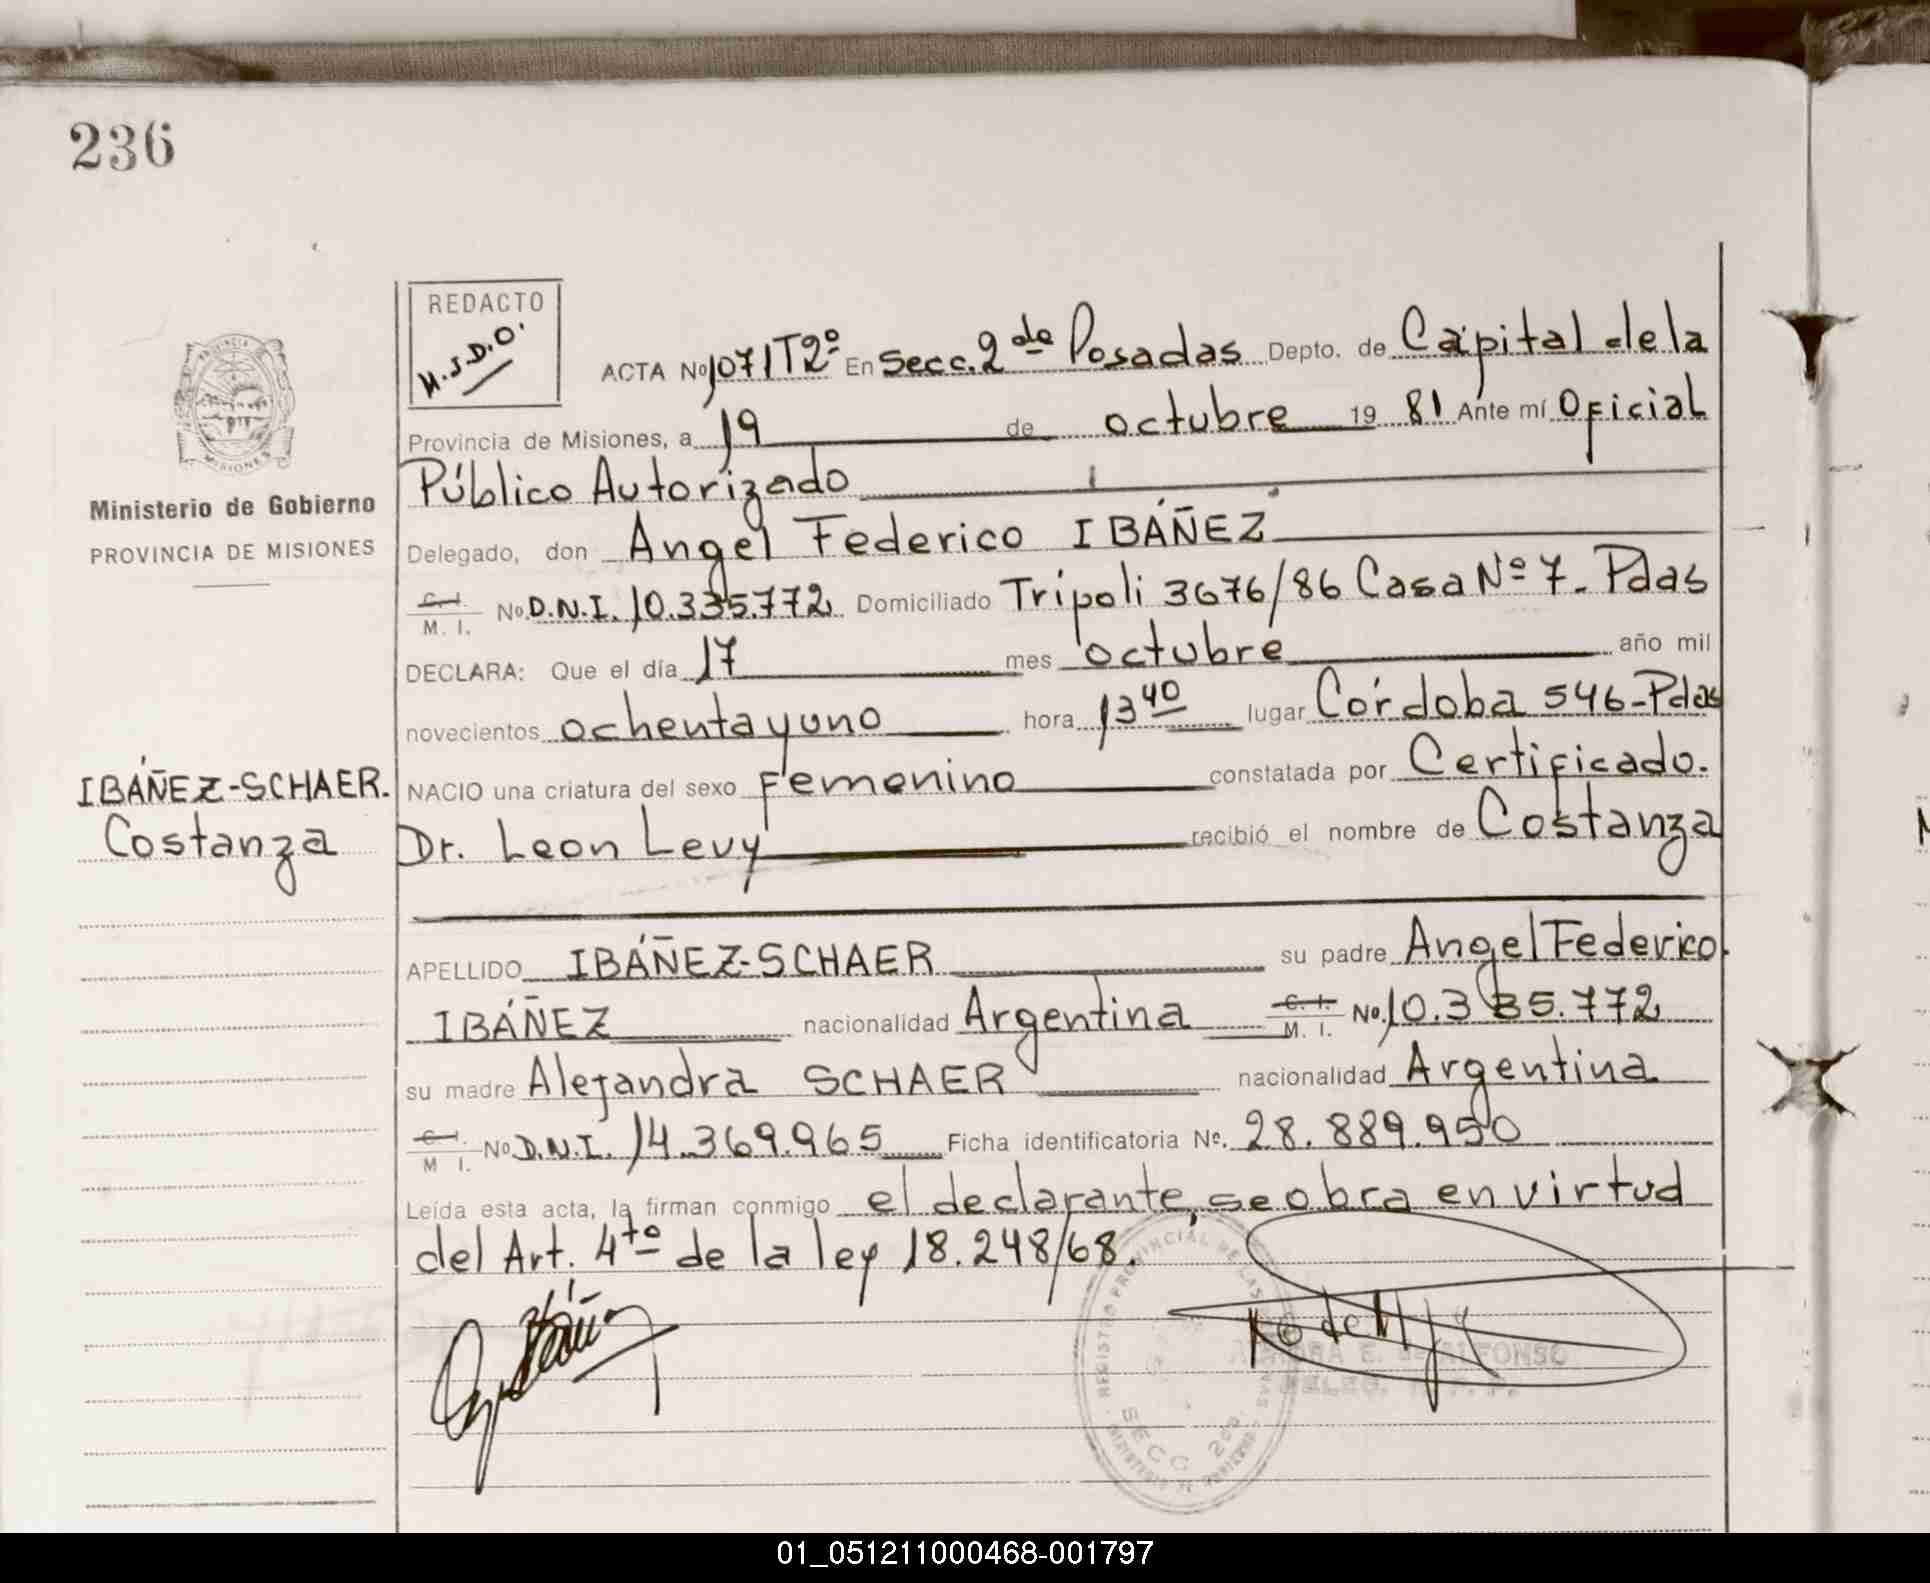 236
REDACTO
M.S.D.O.
ACTA No 1071T2º En Secc. 2da Posadas Depto. de Capital de la
Provincia de Misiones, a 19 de octubre 19 81 Ante mí Oficial
Público Autorizado
Delegado, don Angel Federico IBÁÑEZ
C.I.
M. I. No. D.N.I. 10.335.772 Domiciliado Trípoli 3676/86 Casa Nº 7. Pdas
DECLARA: Que el día 17 mes octubre año mil
novecientos ochenta y uno hora 13 40 lugar Córdoba 546-Pdas
NACIO una criatura del sexo Femenino constatada por Certificado.
Dr. Leon Levy recibió el nombre de Costanza
APELLIDO IBÁÑEZ-SCHAER su padre Angel Federico
IBÁÑEZ nacionalidad Argentina C. I. M. I. No. 10.335.772
su madre Alejandra SCHAER nacionalidad Argentina
C.I.
M I. No D.N.I. 14.369.965 Ficha identificatoria Nº. 28.889.950
Leída esta acta, la firman conmigo el declarante, se obra en virtud
del Art. 4to de la ley 18.248/68.
PROVINCIA
MISIONES
Ministerio de Gobierno
PROVINCIA DE MISIONES
IBÁÑEZ-SCHAER.
Costanza
REGISTRO PROVINCIAL DE LAS
SECC 2da
E. de ALFONSO
01_051211000468-001797